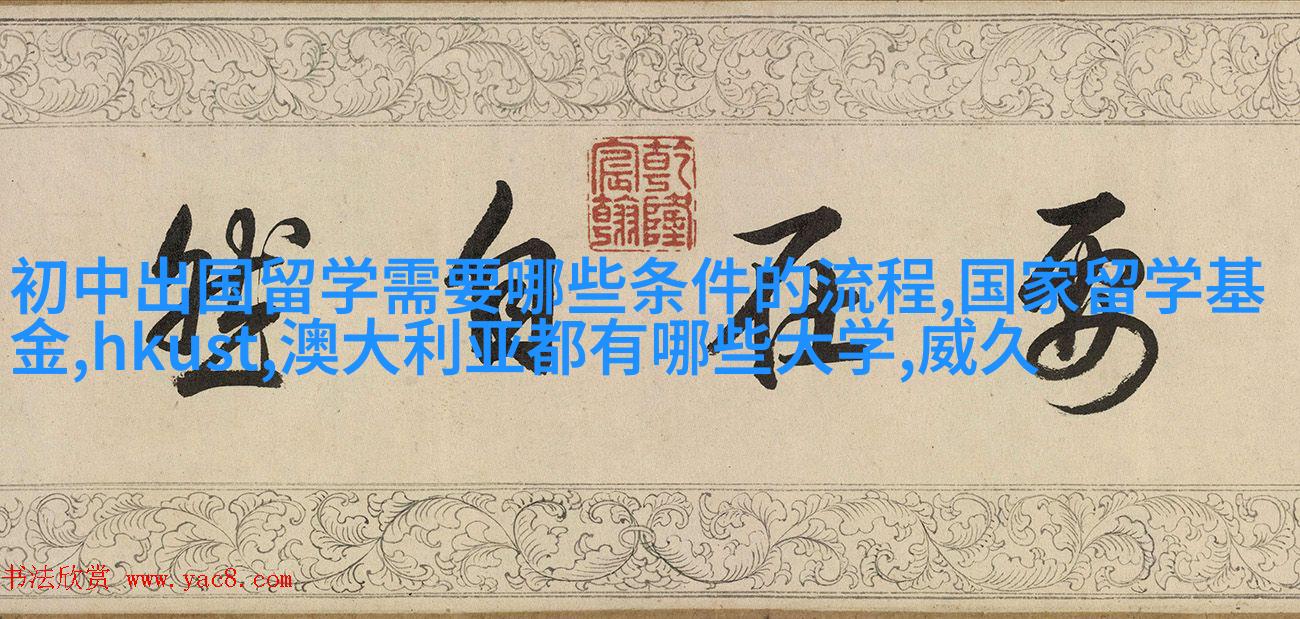 乾隆宸翰
要在自然
初中出国留学需要哪些条件的流程,国家留学基
金,hkust,澳大利亚都有哪些大学,威久
书法欣赏 www.yac8.com